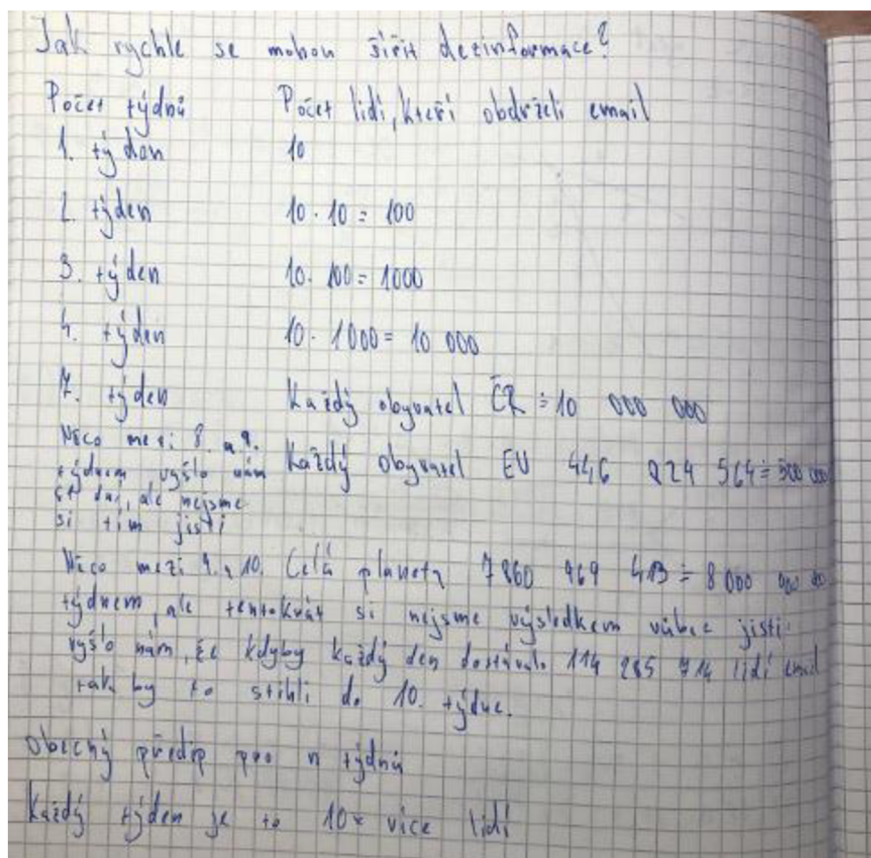 Jak rychle se mohou šířit dezinformace?
Počet týdnů Počet lidí, kteří obdrželi email
1. týden 10
2. týden 10 · 10 = 100
3. týden 10 · 100 = 1000
4. týden 10 · 1000 = 10 000
7. týden Každý obyvatel ČR ≐ 10 000 000
Něco mezi 8. a 9.
týdnem vyšlo nám Každý obyvatel EU 446 824 564 ≐ 500 000
dní, ale nejsme
si tím jisti
Něco mezi 9. a 10. Celá planeta 7 860 969 413 ≐ 8 000 000 000
týdnem, ale tentokrát si nejsme výsledkem vůbec jisti.
vyšlo nám, že kdyby každý den dostávalo 114 285 714 lidí email
tak by to stihli do 10. týdne.
Obecný předip pro n týdnů
Každý týden je to 10× více lidí